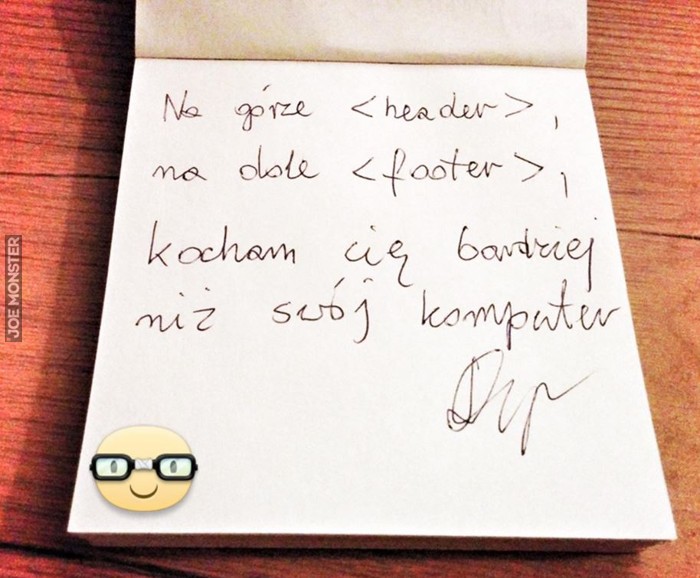 Na górze <header>,
na dole <footer>,
kocham cię bardziej
niż swój komputer
JOE MONSTER